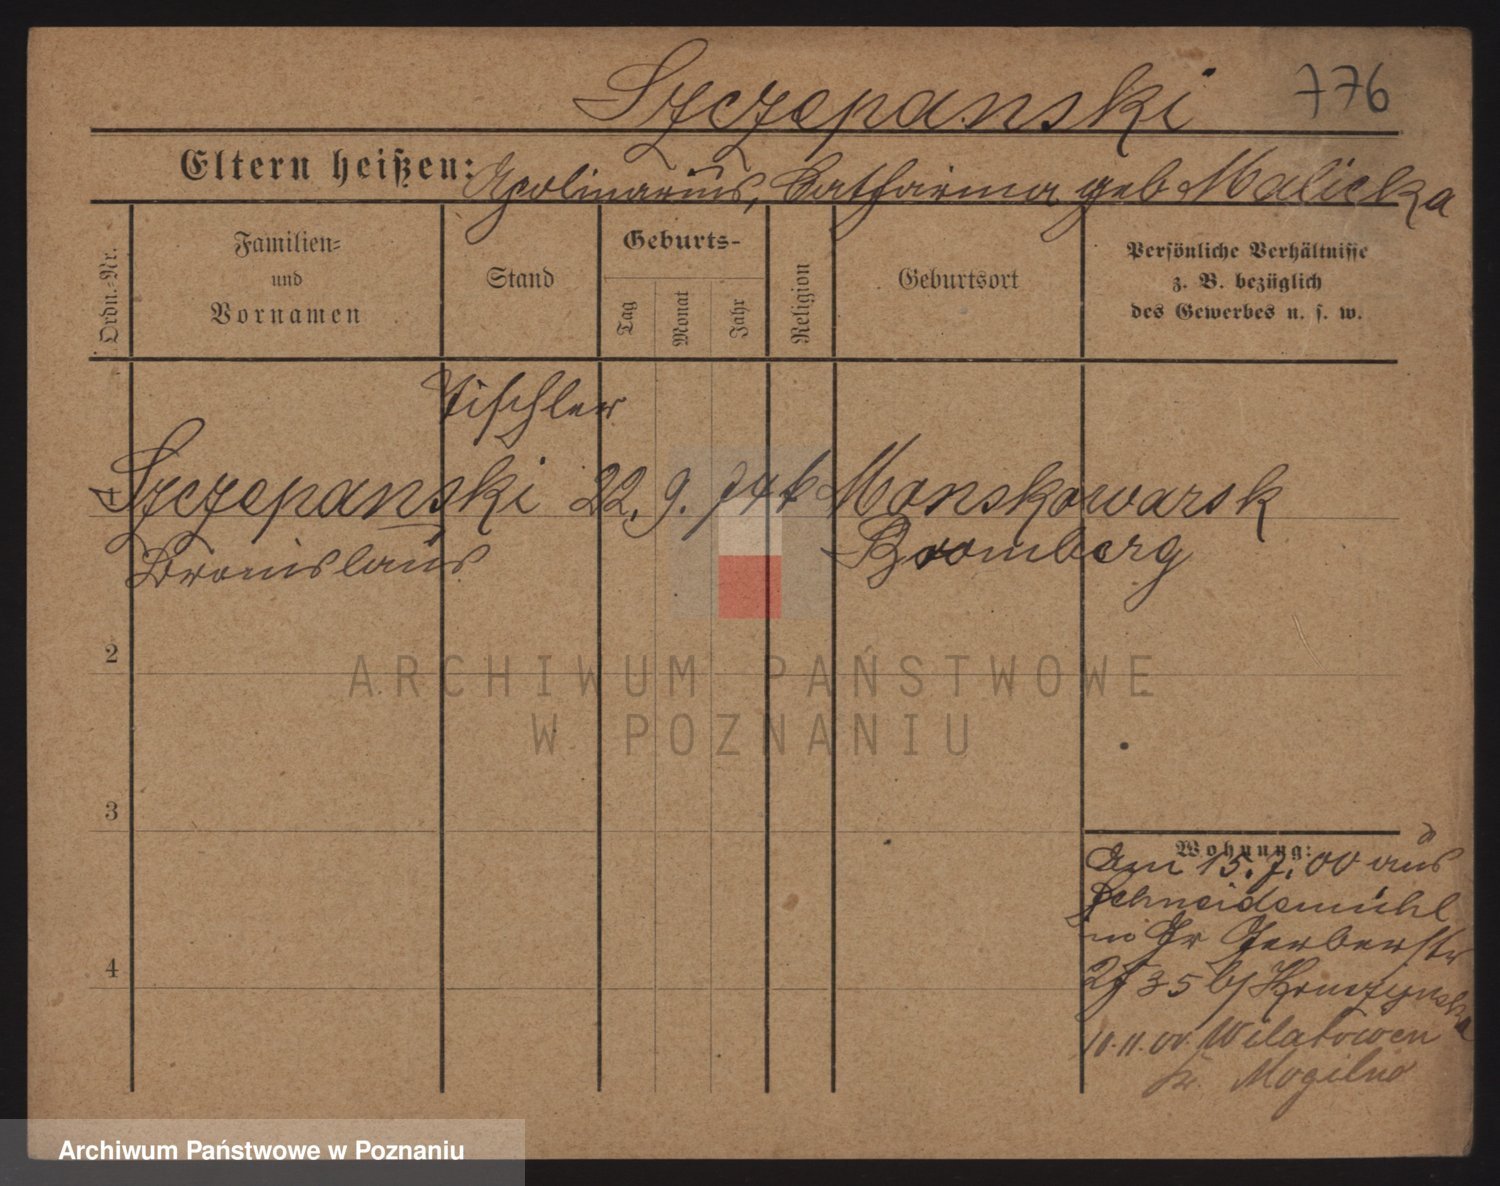 Szczepanski 776
Eltern heißen: Apolinarius, Catharina geb Malicka
Ordn.-Nr.
Familien-
und
Vornamen
Stand
Geburts-
Tag
Monat
Jahr
Religion
Geburtsort
Persönliche Verhältnisse
z. B. bezüglich
des Gewerbes u. s. w.
Tischler
1 Szczepanski 22. 9. 74 k Monskowarsk
Bronislaus Bromberg
2
ARCHIWUM PAŃSTWOWE
W POZNANIU
3
4
Wohnung:
Am 15. 7. 00 aus
Schneidemühl
in Gr Gerberstr
35 b/ Kruszynska
10.11.00 Wilatowen
Kr. Mogilno
Archiwum Państwowe w Poznaniu